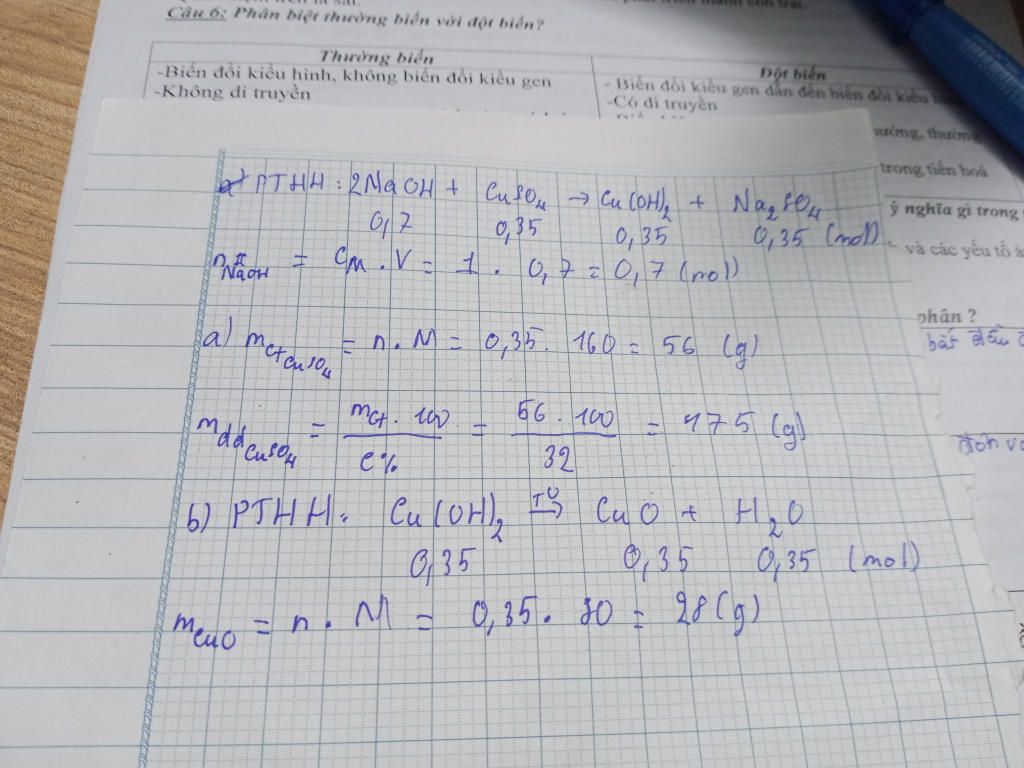 Câu 6: Phân biệt thường biến với đột biến?
Thường biến
-Biến đổi kiểu hình, không biến đổi kiểu gen
-Không di truyền
Đột biến
- Biến đổi kiểu gen dẫn đến biến đổi kiểu hình
-Có di truyền
trong tiến hoá
ý nghĩa gì trong
và các yếu tố
phân ?
bắt đầu
PTHH : 2NaOH + CuSO4 → Cu(OH)2 + Na2SO4
0,7 0,35 0,35 0,35 (mol)
nNaOH = CM . V = 1 . 0,7 = 0,7 (mol)
a) mctCuSO4 = n . M = 0,35 . 160 = 56 (g)
mddCuSO4 = mct . 100 / C% = 56 . 100 / 32 = 175 (g)
b) PTHH: Cu(OH)2 →T0 CuO + H2O
0,35 0,35 0,35 (mol)
mCuO = n . M = 0,35 . 80 = 28 (g)